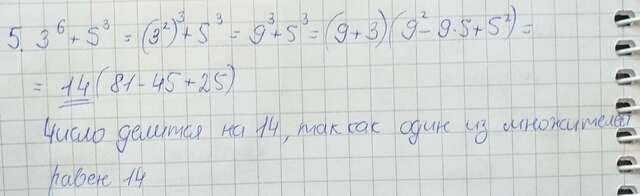 5. 3⁶ + 5³ = (3²)³ + 5³ = 9³ + 5³ = (9 + 3)(9² - 9·5 + 5²) =
= 14(81 - 45 + 25)
Число делится на 14, так как один из множителей
равен 14